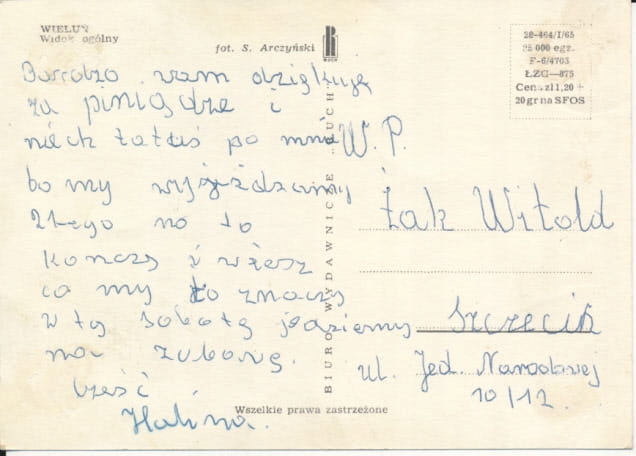 WIELUŃ
Widok ogólny
fot. S. Arczyński
RUCH
28-464/I/65
25 000 egz.
F-6/4703
ŁZG—875
Cena zł 1,20 +
20 gr na SFOS
Barrdzo vam dziękuję
za piniądze i
niech tatuś po mnie
bo my wyjeżdzamy
31tego no to
kończę i
co my to znaczy
w tą sobotę jedziemy
na zabawę.
cześć
Halina.
BIURO WYDAWNICZE „RUCH"
W.P.
Żak Witold
Szczecin
ul. Jed. Narodowej
10/12.
Wszelkie prawa zastrzeżone